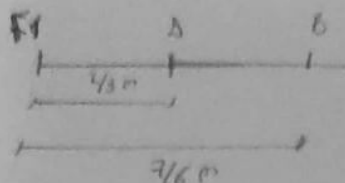 F1 A B
1/3 m
7/6 m